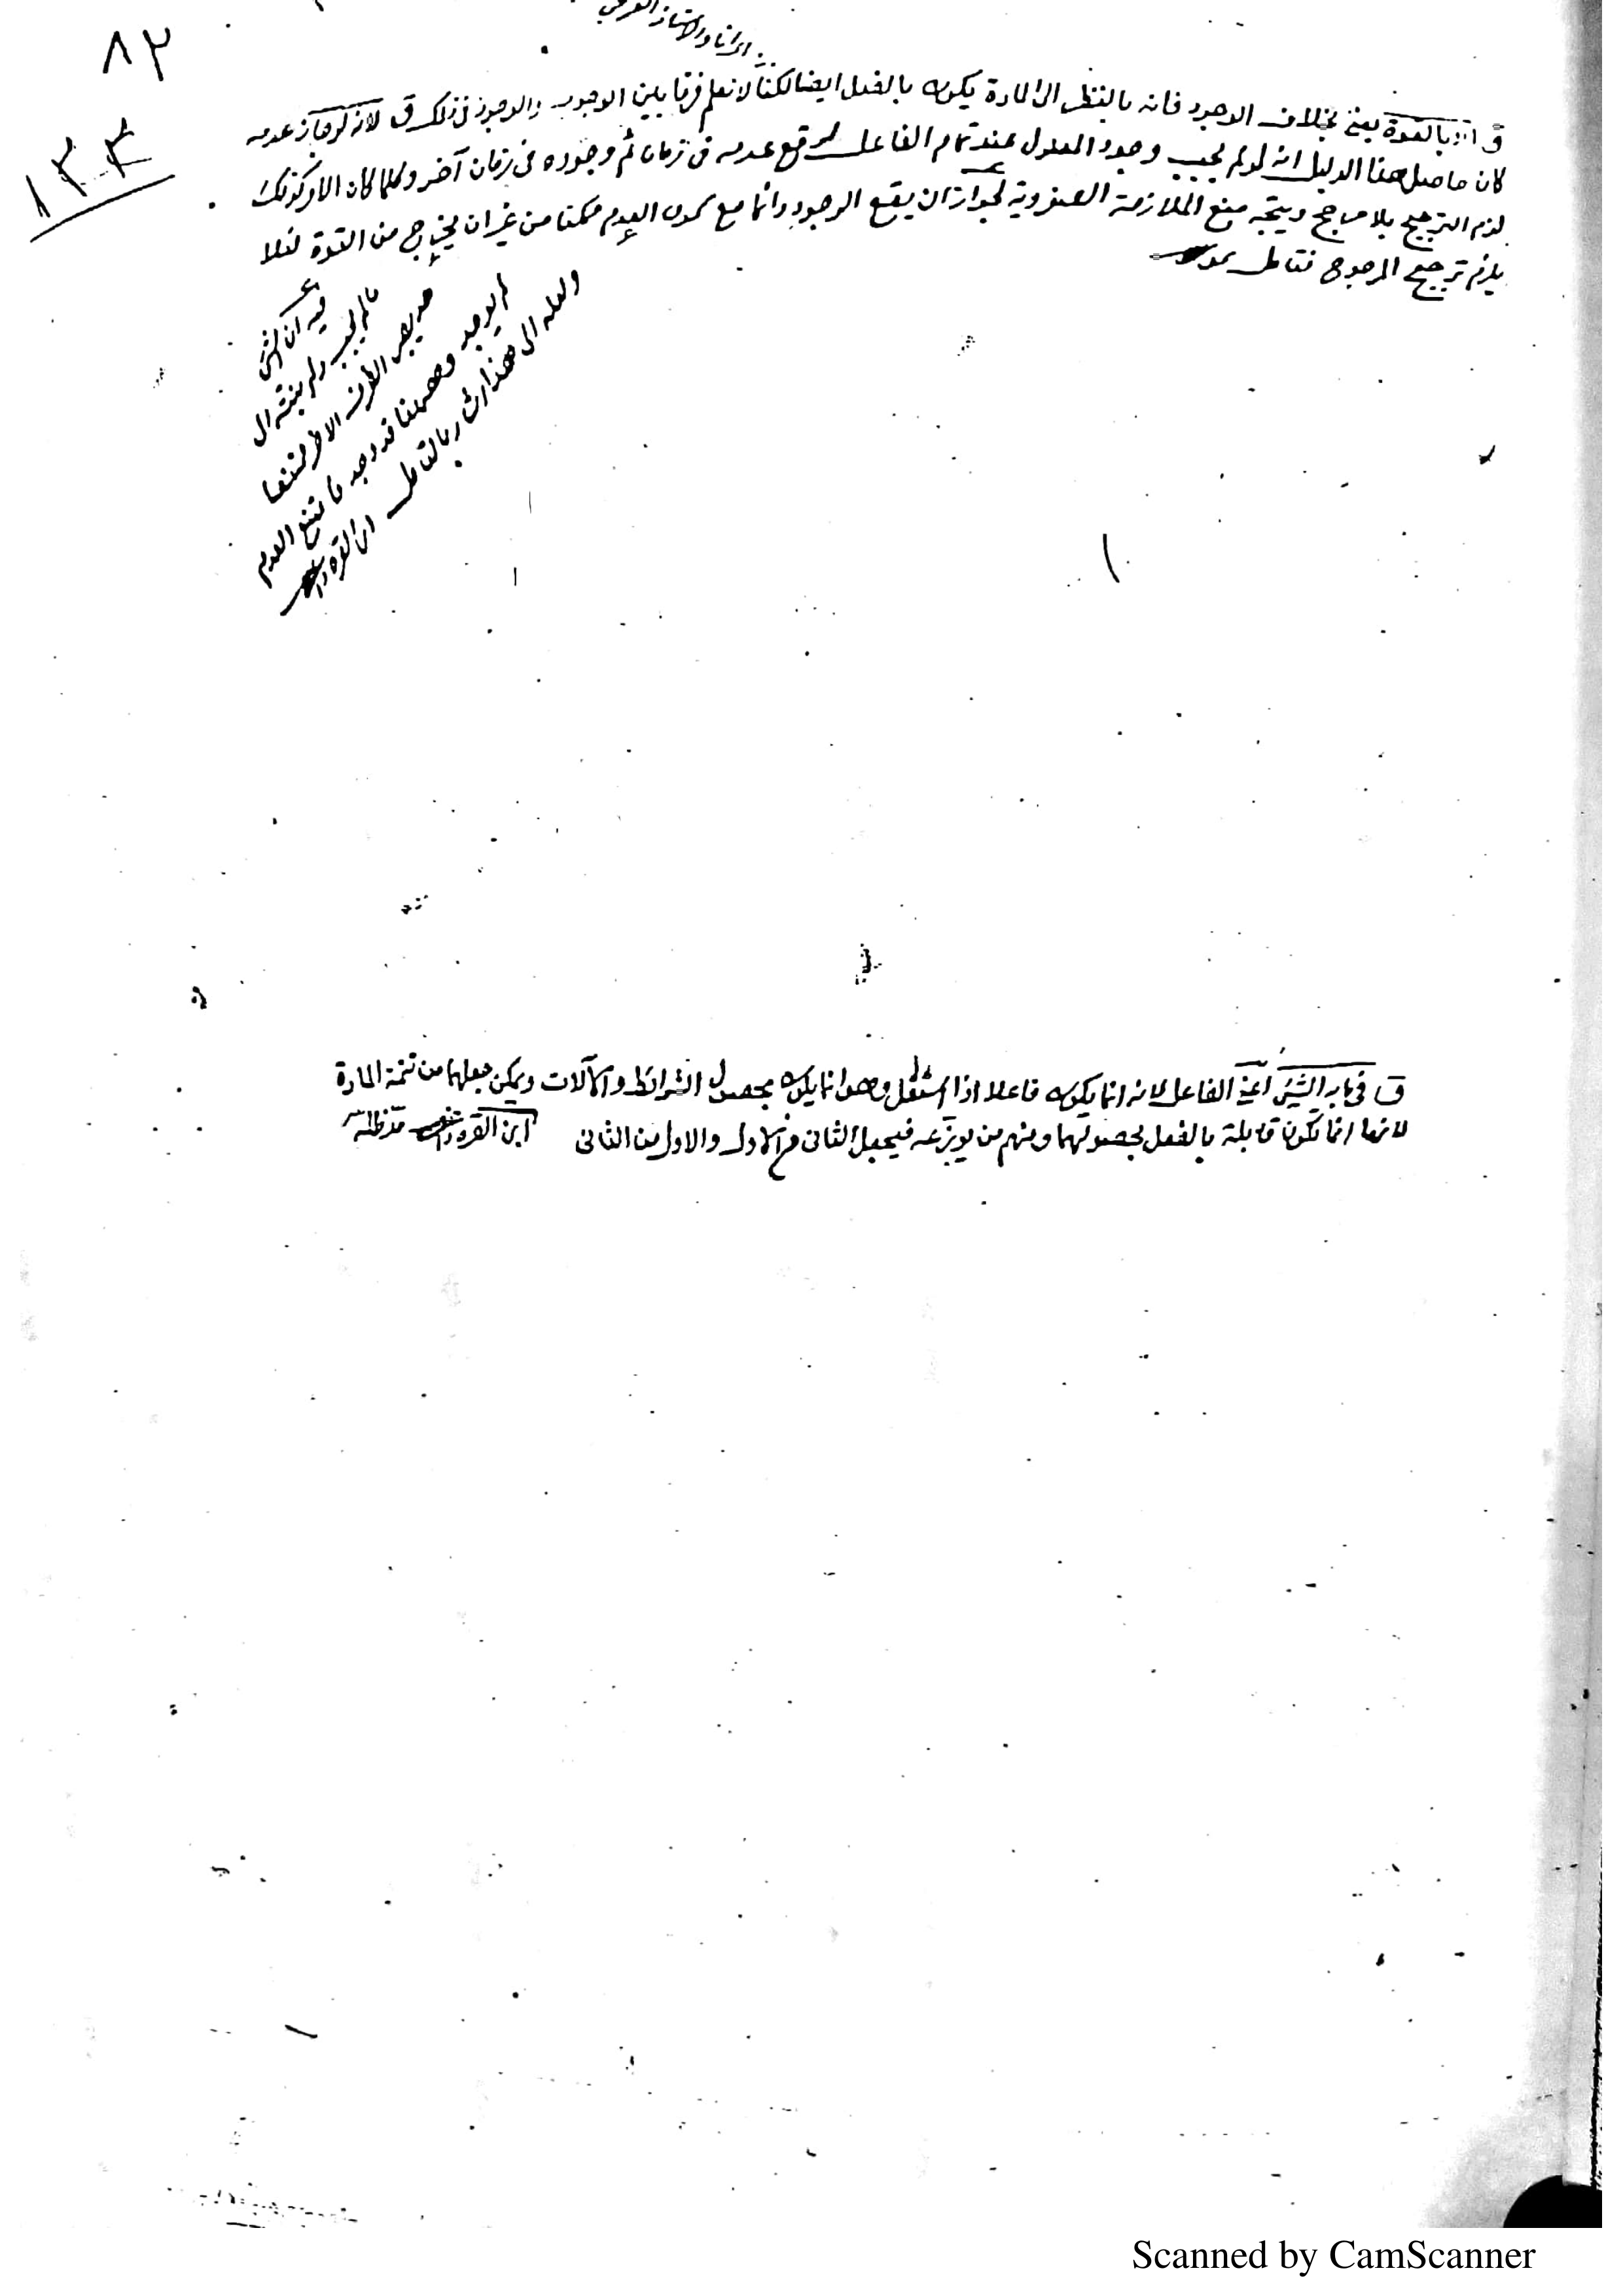 ٨٢
١٣٣
ق بالقوة يعنى بخلاف الوجود فانه بالنظر الى المادة يكون بالفعل ايضا لكنا لا نعلم فرقا بين الوجوب والوجود فى ذلك ق لانه لو جاز عدمه
كان حاصل هذا الدليل انه لو لم يجب وجود المعلول عند تمام الفاعل لوقع عدمه فى زمان ثم وجوده فى زمان آخر وكلما كان الامر كذلك
لزم الترجيح بلا مرجح ويتجه منع الملازمة الصغروية لجواز ان يقع الوجود دائما مع كون العدم ممكنا من غير ان يخرج من القوة لئلا
يلزم ترجيح المرجوح فتأمل
فيه ان الشئ
ما لم يجب ولم ينته الى
حد يصير الطرف الآخر ممتنعا
لم يوجد وههنا قد وجد فامتنع العدم
لعله الى هذا اشار بالتأمل ابن القره داغى
ق فى تأثير الشئ اعنى الفاعل لانه انما يكون فاعلا اذا استقل وهو انما يكون بحصول الشرائط والآلات ويمكن جعلها من تتمة المادة
لانها انما تكون قابلة بالفعل بحصولهما ومنهم من يوزعه فيجعل الثانى من الاول والاول من الثانى ابن القره داغى مد ظله
Scanned by CamScanner